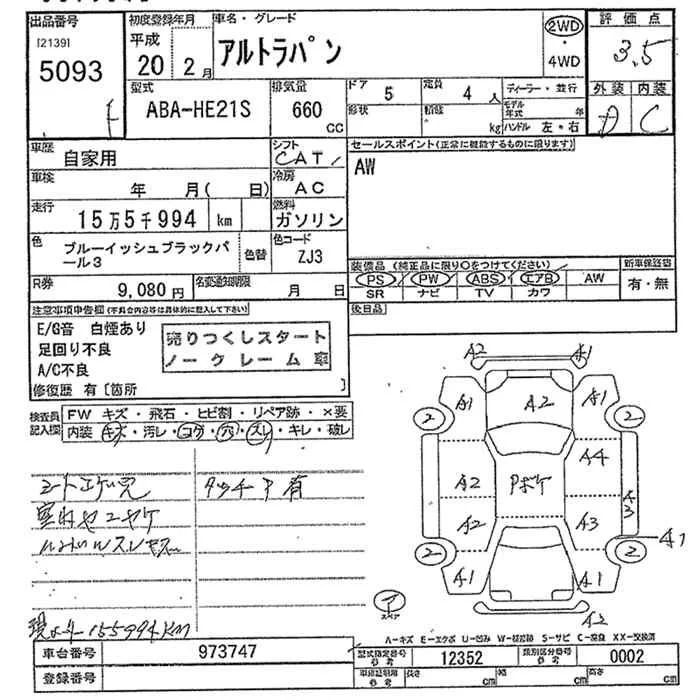 出品番号
[2139]
5093
初度登録年月
平成
20年 2月
車名・グレード
アルトラパン
2WD
・
4WD
評価点
3.5
型式
ABA-HE21S
排気量
660
CC
ドア 5
定員 4人
形状
積載 kg
ディーラー・並行
モデル年式 年
ハンドル 左・右
外装 内装
D C
車歴
自家用
シフト
CAT
車検
年 月( 日)
冷房
AC
走行
15万5千994 km
燃料
ガソリン
色
ブルーイッシュブラックパール3
色替
色コード
ZJ3
R券
9,080円
名変通知期限
月 日
セールスポイント(正常に機能するものに限ります)
AW
装備品 (純正品に限り○をつけてください)
PS PW ABS エアB AW
SR ナビ TV カワ
新車保証書
有・無
後日品
注意事項申告欄 (不具合内容等は具体的に記入して下さい)
E/G音 白煙あり
足回り不良
A/C不良
売りつくしスタート
ノークレーム車
修復歴 有 [箇所 ]
検査員記入欄
FW キズ・飛石・ヒビ割・リペア跡・×要
内装 キズ・汚レ・コゲ・穴・スレ・キレ・破レ
シートコゲ穴
タッチP有
現メーター155994KM
A2 A1
A1 A2 A1
2 2
A4
A2 Pボケ
A3
A2 A3
2 2 A1
A1 A1
スペア
A2
A-キズ E-エクボ U-凹み W-補修跡 S-サビ C-腐食 XX-交換済
車台番号
973747
型式指定番号
参考
12352
類別区分番号
参考
0002
登録番号
車庫証明用
参考
長さ cm
幅 cm
高さ cm